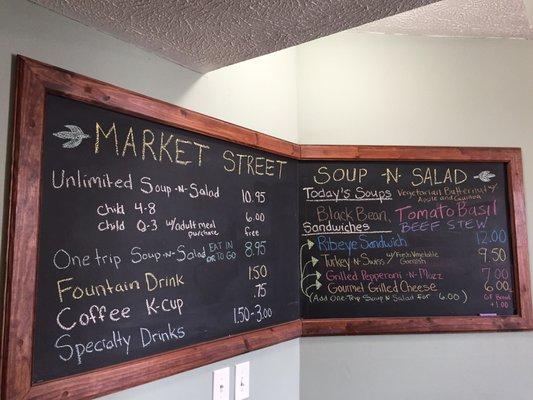 MARKET STREET
Unlimited Soup-N-Salad 10.95
Child 4-8 6.00
Child 0-3 w/adult meal purchase free
One trip Soup-N-Salad EAT IN OR TO GO 8.95
Fountain Drink 1.50
Coffee K-cup .75
Specialty Drinks 1.50-3.00
SOUP-N-SALAD
Today's Soups Vegetarian Butternut w/
Apple and Quinoa
Black Bean, Tomato Basil
BEEF STEW
Sandwiches
Ribeye Sandwich 12.00
Turkey-N-Swiss w/Fresh Vegetable Garnish 9.50
Grilled Pepperoni-N-Mozz 7.00
Gourmet Grilled Cheese 6.00
(Add One-Trip Soup N Salad for 6.00)
GF BREAD
+1.00